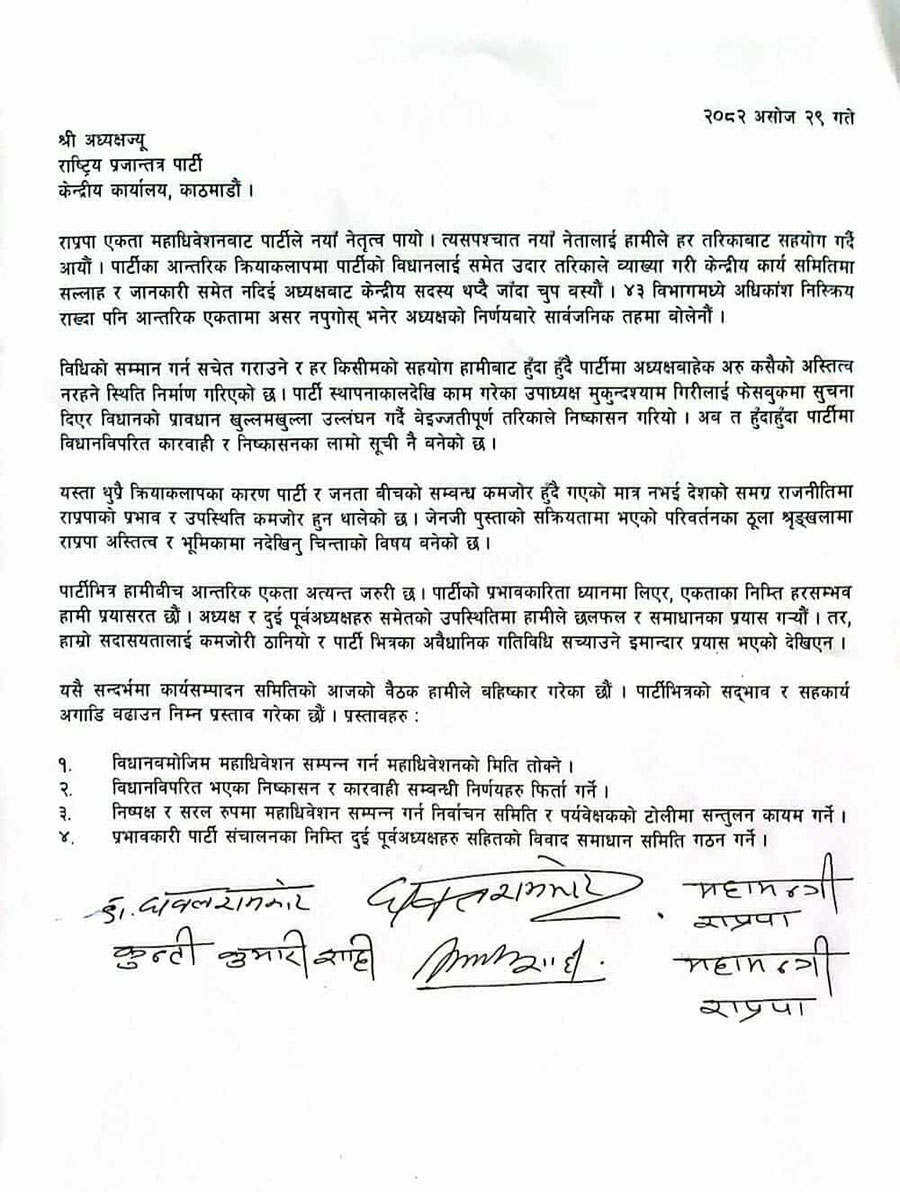 २०८२ असोज २९ गते
श्री अध्यक्षज्यू
राष्ट्रिय प्रजान्तत्र पार्टी
केन्द्रीय कार्यालय, काठमाडौं ।
राप्रपा एकता महाधिवेशनबाट पार्टीले नयाँ नेतृत्व पायो । त्यसपश्चात नयाँ नेतालाई हामीले हर तरिकाबाट सहयोग गर्दै
आयौं । पार्टीका आन्तरिक क्रियाकलापमा पार्टीको विधानलाई समेत उदार तरिकाले व्याख्या गरी केन्द्रीय कार्य समितिमा
सल्लाह र जानकारी समेत नदिई अध्यक्षबाट केन्द्रीय सदस्य थप्दै जाँदा चुप बस्यौं । ४३ विभागमध्ये अधिकांश निस्क्रिय
राख्दा पनि आन्तरिक एकतामा असर नपुगोस् भनेर अध्यक्षको निर्णयबारे सार्वजनिक तहमा बोलेनौं ।
विधिको सम्मान गर्न सचेत गराउने र हर किसीमको सहयोग हामीबाट हुँदा हुँदै पार्टीमा अध्यक्षबाहेक अरु कसैको अस्तित्व
नरहने स्थिति निर्माण गरिएको छ । पार्टी स्थापनाकालदेखि काम गरेका उपाध्यक्ष मुकुन्दश्याम गिरीलाई फेसबुकमा सुचना
दिएर विधानको प्रावधान खुल्लमखुल्ला उल्लंघन गर्दै बेइज्जतीपूर्ण तरिकाले निष्कासन गरियो । अब त हुँदाहुँदा पार्टीमा
विधानविपरित कारवाही र निष्कासनका लामो सूची नै बनेको छ ।
यस्ता थुप्रै क्रियाकलापका कारण पार्टी र जनता बीचको सम्वन्ध कमजोर हुँदै गएको मात्र नभई देशको समग्र राजनीतिमा
राप्रपाको प्रभाव र उपस्थिति कमजोर हुन थालेको छ । जेनजी पुस्ताको सक्रियतामा भएको परिवर्तनका ठूला श्रृङ्खलामा
राप्रपा अस्तित्व र भूमिकामा नदेखिनु चिन्ताको विषय बनेको छ ।
पार्टीभित्र हामीवीच आन्तरिक एकता अत्यन्त जरुरी छ । पार्टीको प्रभावकारिता ध्यानमा लिएर, एकताका निम्ति हरसम्भव
हामी प्रयासरत छौं । अध्यक्ष र दुई पूर्वअध्यक्षहरु समेतको उपस्थितिमा हामीले छलफल र समाधानका प्रयास गर्‍यौं । तर,
हाम्रो सदासयतालाई कमजोरी ठानियो र पार्टी भित्रका अवैधानिक गतिविधि सच्याउने इमान्दार प्रयास भएको देखिएन ।
यसै सन्दर्भमा कार्यसम्पादन समितिको आजको वैठक हामीले वहिष्कार गरेका छौं । पार्टीभित्रको सद्‌भाव र सहकार्य
अगाडि वढाउन निम्न प्रस्ताव गरेका छौं । प्रस्तावहरु :
१. विधानवमोजिम महाधिवेशन सम्पन्न गर्न महाधिवेशनको मिति तोक्ने ।
२. विधानविपरित भएका निष्कासन र कारवाही सम्वन्धी निर्णयहरु फिर्ता गर्ने ।
३. निष्पक्ष र सरल रुपमा महाधिवेशन सम्पन्न गर्न निर्वाचन समिति र पर्यवेक्षकको टोलीमा सन्तुलन कायम गर्ने ।
४. प्रभावकारी पार्टी संचालनका निम्ति दुई पूर्वअध्यक्षहरु सहितको विवाद समाधान समिति गठन गर्ने ।
डा. धवलशमशेर धवलशमशेर महामन्त्री
राप्रपा
कुन्ती कुमारी शाही शाही महामन्त्री
राप्रपा